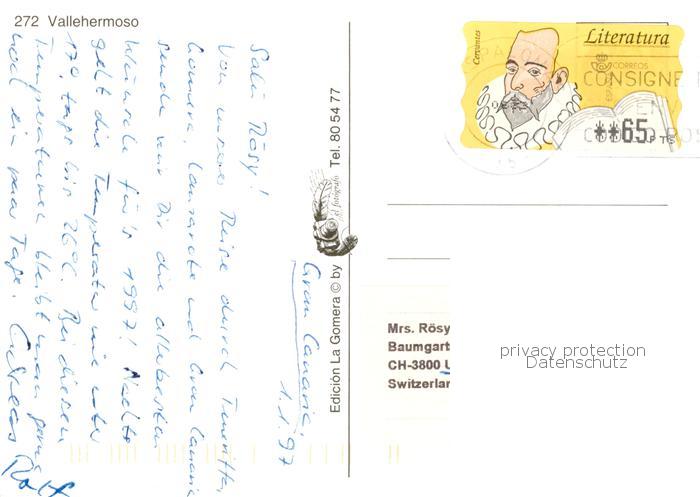 272 Vallehermoso
Gran Canaria,
1.1.97
Sali Rösy!
Von unserer Reise durch Teneriffa,
Gomera, Lanzarote und Gran Canaria
senden wir Dir die allerbesten
Wünsche für's 1997! Nachts
geht die Temperatur nie unter
17°, tags bis 26°C. Bei diesen
Temperaturen bleibt man gerne
noch ein paar Tage.
Rolf
Edición La Gomera © by
el fotógrafo
Tel. 80 54 77
Cervantes
Literatura
CORREOS
ESPAÑA
CONSIGNE
**65 PTS
Mrs. Rösy
Baumgart
CH-3800 U
Switzerlan
privacy protection
Datenschutz